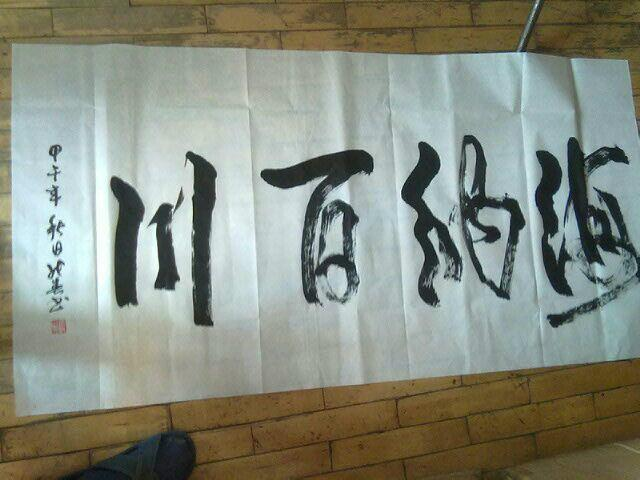 海纳百川
甲午年秋日